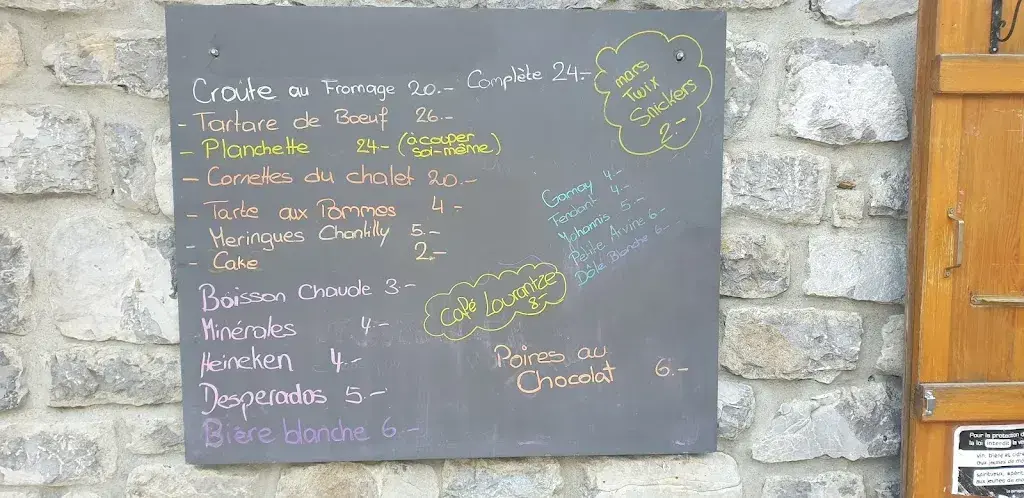 Croûte au Fromage 20.- Complète 24.-
- Tartare de Bœuf 26.-
- Planchette 24.- (à couper
soi-même)
- Cornettes du chalet 20.-
- Tarte aux Pommes 4.-
- Meringues Chantilly 5.-
- Cake 2.-
Boisson Chaude 3.-
Minérales 4.-
Heineken 4.-
Desperados 5.-
Bière blanche 6.-
mars
Twix
Snickers
2.-
Gamay 4.-
Fendant 4.-
Johannis 5.-
Petite Arvine 6.-
Dôle Blanche 6.-
Café Lourantze
8.-
Poires au
Chocolat 6.-
Pour la protection
la loi interdit la